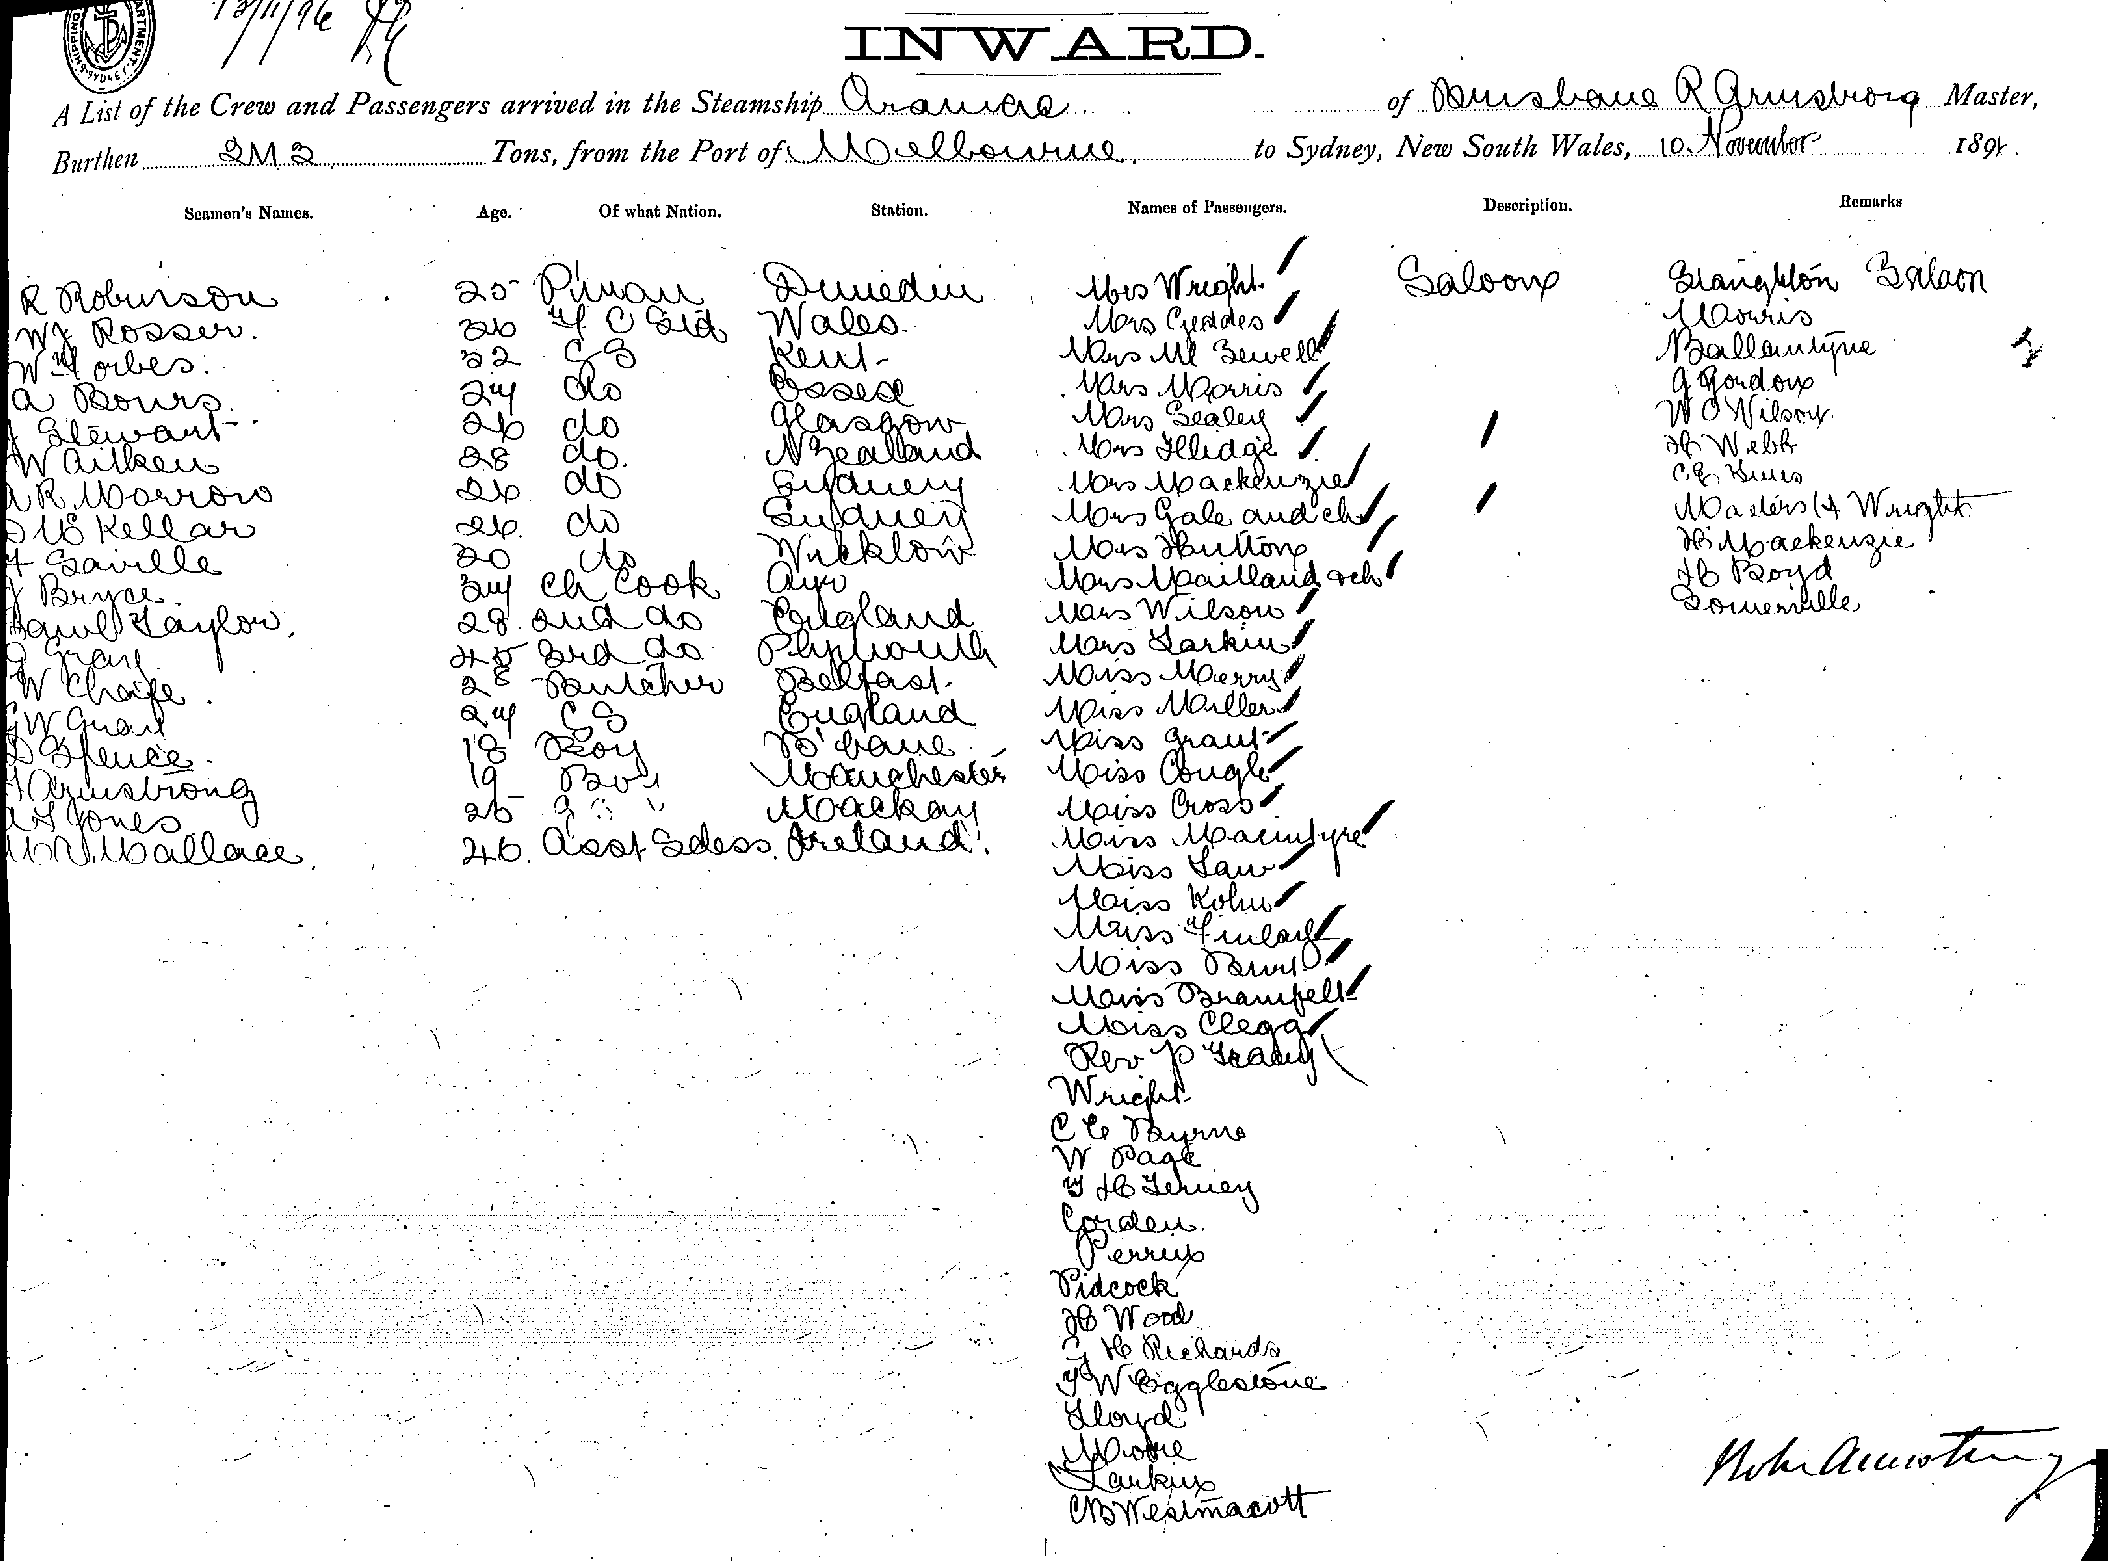 13/11/96
INWARD.
A List of the Crew and Passengers arrived in the Steamship Aramac of Brisbane R Armstrong Master,
Burthen Tons, from the Port of Melbourne to Sydney, New South Wales, 10 November 189
Seamen's Names. Age. Of what Nation. Station. Names of Passengers. Description. Remarks
R Robinson 25 Pman Dunedin Mrs Wright Saloon Staughton Saloon
W J Rosser. 26 Wales. Mrs Geddes Morris
W Forbes. 32 CS Kent Mrs M Sewell Ballantyne
A Bours. 24 do Essex Mrs Morris G Gordon
J Stewart 26 do Glasgow Mrs Sealey W O Wilson
W Aitken 28 do. N Zealand Mrs Illidge H Webb
A R Morrow 26 do Sydney Mrs Mackenzie
McKellar 26. do Sydney Mrs Gale and ch Masters (4 Wright
Saville 20 do Wicklow Mrs Hutton H Mackenzie
J Bryce. 34 Ch Cook Ayr Mrs Maitland & ch H Boyd
Saml Taylor. 28. 2nd do England Mrs Wilson Somerville
Gray 45 3rd do Plymouth Mrs Larkin
W Chaife. 28 Butcher Belfast. Miss Merry
G W Quail 24 CS England Miss Miller
D Spence. 18 Boy B'bane Miss Grant
Armstrong 19 Boy Manchester Miss Cough
Jones 25 Mackay Miss Cross
Wallace. 46. Asst Sdess. Ireland. Miss Macintyre
Miss Law
Miss Kohn
Miss Finlay
Miss
Miss Brampell
Miss Clegg
Rev P Tracey
Wright
C E Byrne
W Page
F H Ferney
Corden.
Perrin
Pidcock
H Wood
G H Richards
F W Egglestone
Lloyd
Moore
Larkin
C B Westmacott
Robt Armstrong